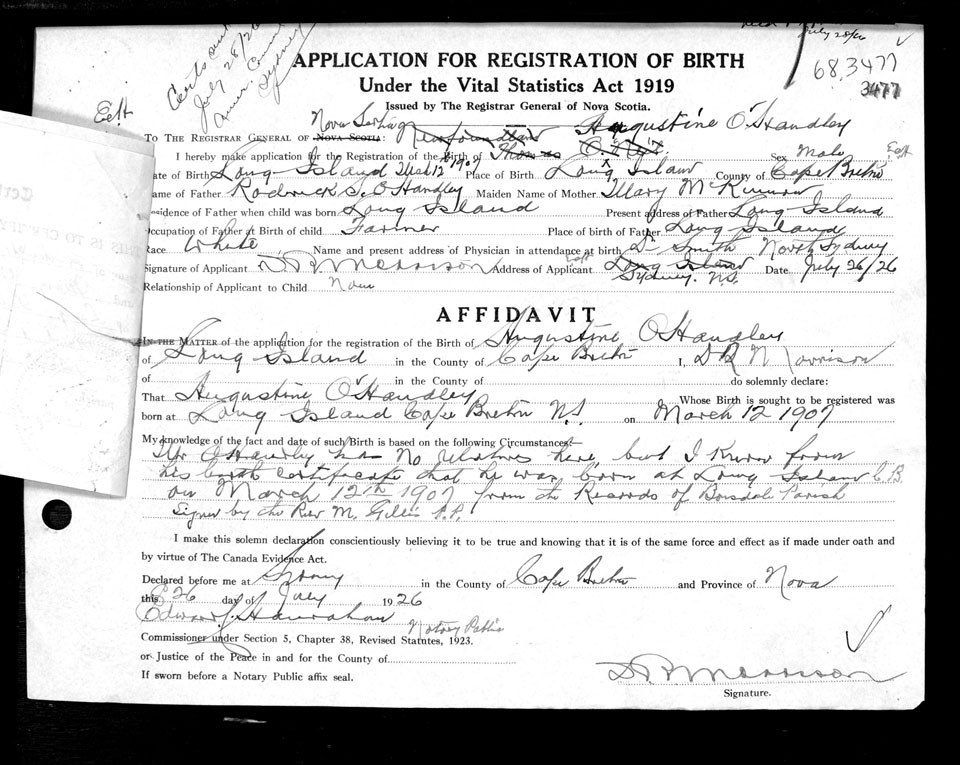 July 28/26
July 28/26
Sydney
68,3477
3477
APPLICATION FOR REGISTRATION OF BIRTH
Under the Vital Statistics Act 1919
Issued by The Registrar General of Nova Scotia.
Nova Scotia
TO THE REGISTRAR GENERAL OF NOVA SCOTIA: Newfoundland Augustine O'Handley
I hereby make application for the Registration of the Birth of Thomas Sex Male
Date of Birth Long Island Mch 12 1907 Place of Birth Long Island County of Cape Breton
Name of Father Roderick S. O'Handley Maiden Name of Mother Mary McKinnon
Residence of Father when child was born Long Island Present address of Father Long Island
Occupation of Father at Birth of child Farmer Place of birth of Father Long Island
Race White Name and present address of Physician in attendance at birth Dr Smith North Sydney
Signature of Applicant D R N Morrison Address of Applicant Long Island Date July 26/26
Sydney. N.S.
Relationship of Applicant to Child None
AFFIDAVIT
IN THE MATTER of the application for the registration of the Birth of Augustine O'Handley
of Long Island in the County of Cape Breton I, D R N Morrison
of in the County of do solemnly declare:
That Augustine O'Handley Whose Birth is sought to be registered was
born at Long Island Cape Breton N.S. on March 12 1907
My knowledge of the fact and date of such Birth is based on the following Circumstances:
Mr O'Handley has No Relatives here, but I Know from
his birth certificate that he was born at Long Island C.B.
on March 12th 1907 from the Records of Boisdale Parish
Signed by the Rev M. Gillis P.P.
I make this solemn declaration conscientiously believing it to be true and knowing that it is of the same force and effect as if made under oath and
by virtue of The Canada Evidence Act.
Declared before me at Sydney in the County of Cape Breton and Province of Nova
this 26 day of July 1926
Edward J. Hanrahan
Notary Public
Commissioner under Section 5, Chapter 38, Revised Statutes, 1923.
or Justice of the Peace in and for the County of
If sworn before a Notary Public affix seal.
D R N Morrison
Signature.